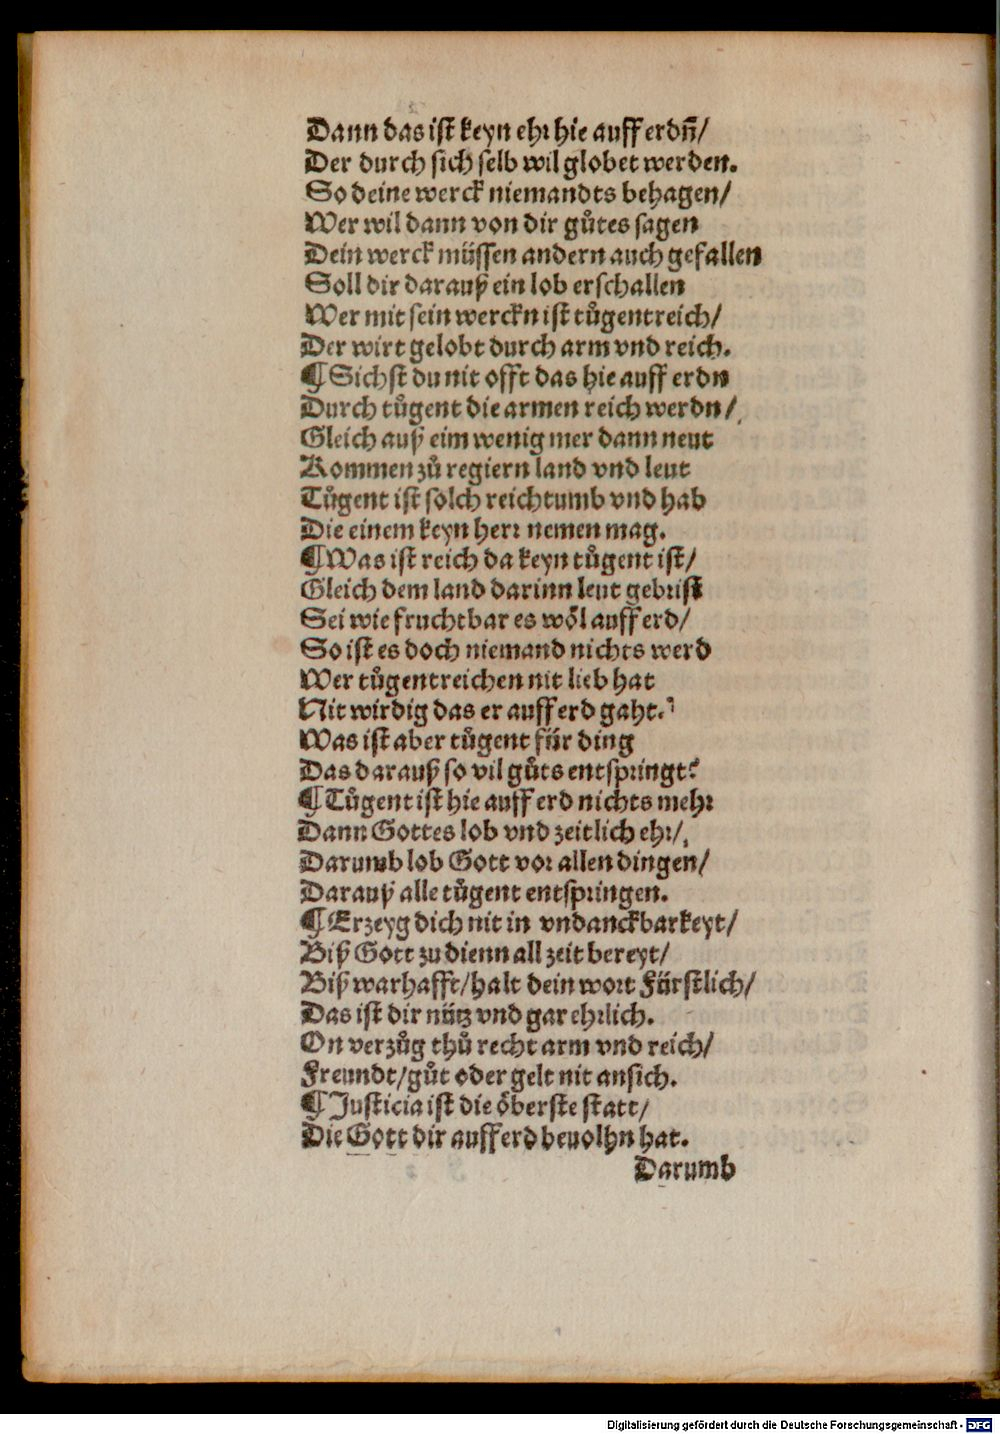 Dann das ist keyn ehr hie auff erdn̄/
Der durch sich selb wil globet werden.
So deine werck niemandts behagen/
Wer wil dann von dir gůtes sagen
Dein werck müssen andern auch gefallen
Soll dir darauß ein lob erschallen
Wer mit sein werckn ist tůgentreich/
Der wirt gelobt durch arm vnd reich.
¶ Sichst du nit offt das hie auff erdn
Durch tůgent die armen reich werdn/
Gleich auß eim wenig mer dann neut
Kommen zů regiern land vnd leut
Tůgent ist solch reichtumb vnd hab
Die einem keyn herr nemen mag.
¶ Was ist reich da keyn tůgent ist/
Gleich dem land darinn leut gebrist
Sei wie fruchtbar es wöl auff erd/
So ist es doch niemand nichts werd
Wer tůgentreichen nit lieb hat
Nit wirdig das er auff erd gaht.
Was ist aber tůgent für ding
Das darauß so vil gůts entspringt?
¶ Tůgent ist hie auff erd nichts mehr
Dann Gottes lob vnd zeitlich ehr/
Darumb lob Gott vor allen dingen/
Darauß alle tůgent entspringen.
¶ Erzeyg dich nit in vndanckbarkeyt/
Biß Gott zu dienn all zeit bereyt/
Biß warhafft/halt dein wort Fürstlich/
Das ist dir nütz vnd gar ehrlich.
On verzůg thů recht arm vnd reich/
Freundt/gůt oder gelt nit ansich.
¶ Justicia ist die öberste statt/
Die Gott dir auff erd beuolhn hat.
Darumb
Digitalisierung gefördert durch die Deutsche Forschungsgemeinschaft - DFG